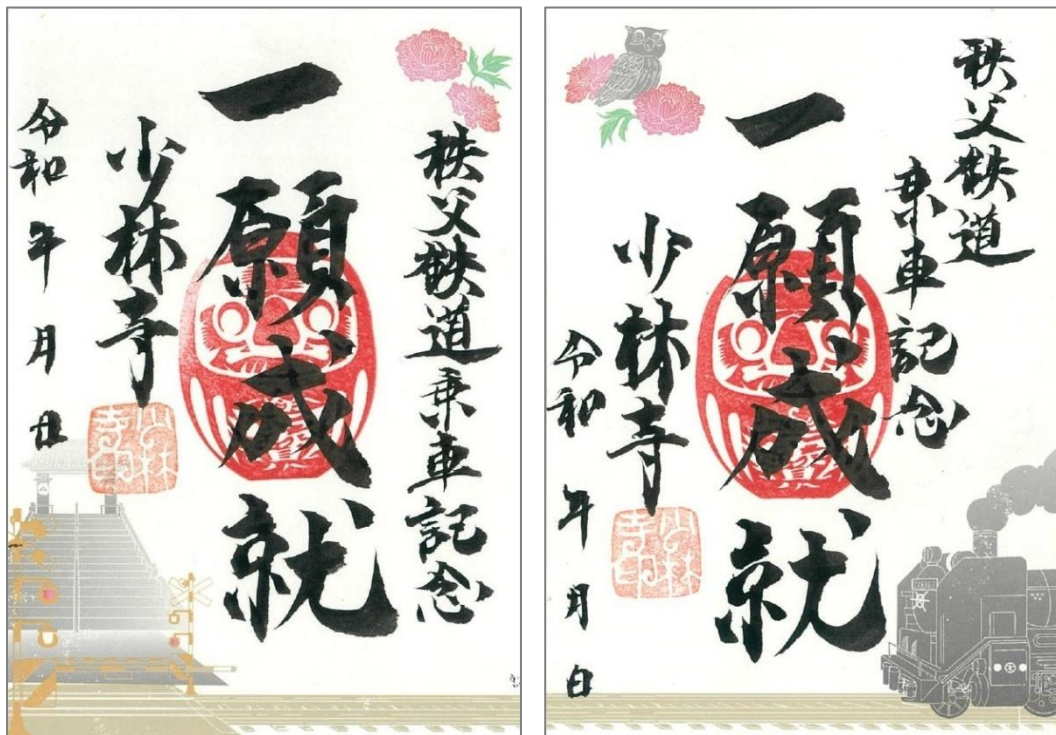 秩父鉄道乗車記念
一願成就
少林寺
令和 年 月 日
秩父鉄道
乗車記念
一願成就
少林寺
令和 年 月 日